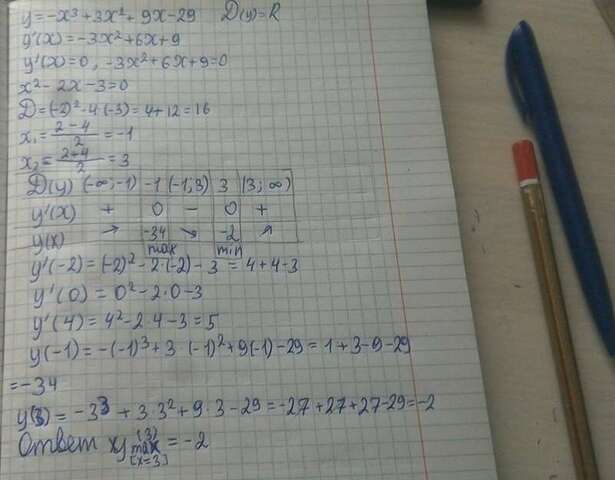 y=-x³+3x²+9x-29 D(y)=R
y'(x)=-3x²+6x+9
y'(x)=0, -3x²+6x+9=0
x²-2x-3=0
D=(-2)²-4·(-3)=4+12=16
x₁=(2-4)/2=-1
x₂=(2+4)/2=3
D(y) (-∞;-1) -1 (-1;3) 3 (3;∞)
y'(x) + 0 - 0 +
y(x) → -34 ↘ -2 ↗
max min
y'(-2)=(-2)²-2·(-2)-3=4+4-3
y'(0)=0²-2·0-3
y'(4)=4²-2·4-3=5
y(-1)=-(-1)³+3(-1)²+9(-1)-29=1+3-9-29
=-34
y(3)=-3³+3·3²+9·3-29=-27+27+27-29=-2
Ответ xy max (3) [x=3] =-2